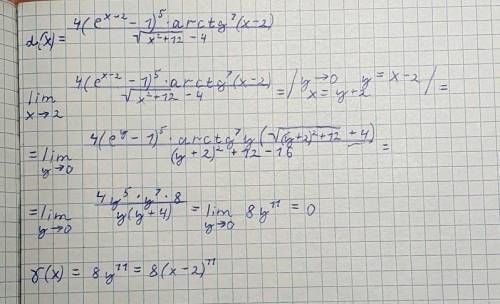 α(x) = 4(e^(x-2) - 1)^5 · arctg^7(x-2) / (√(x²+12) - 4)
lim x→2 4(e^(x-2) - 1)^5 · arctg^7(x-2) / (√(x²+12) - 4) = / y→0 y = x-2 x = y+2 / =
= lim y→0 4(e^y - 1)^5 · arctg^7 y (√((y+2)²+12) + 4) / ((y+2)² + 12 - 16) =
= lim y→0 4y^5 · y^7 · 8 / (y(y+4)) = lim y→0 8y^11 = 0
γ(x) = 8y^11 = 8(x-2)^11